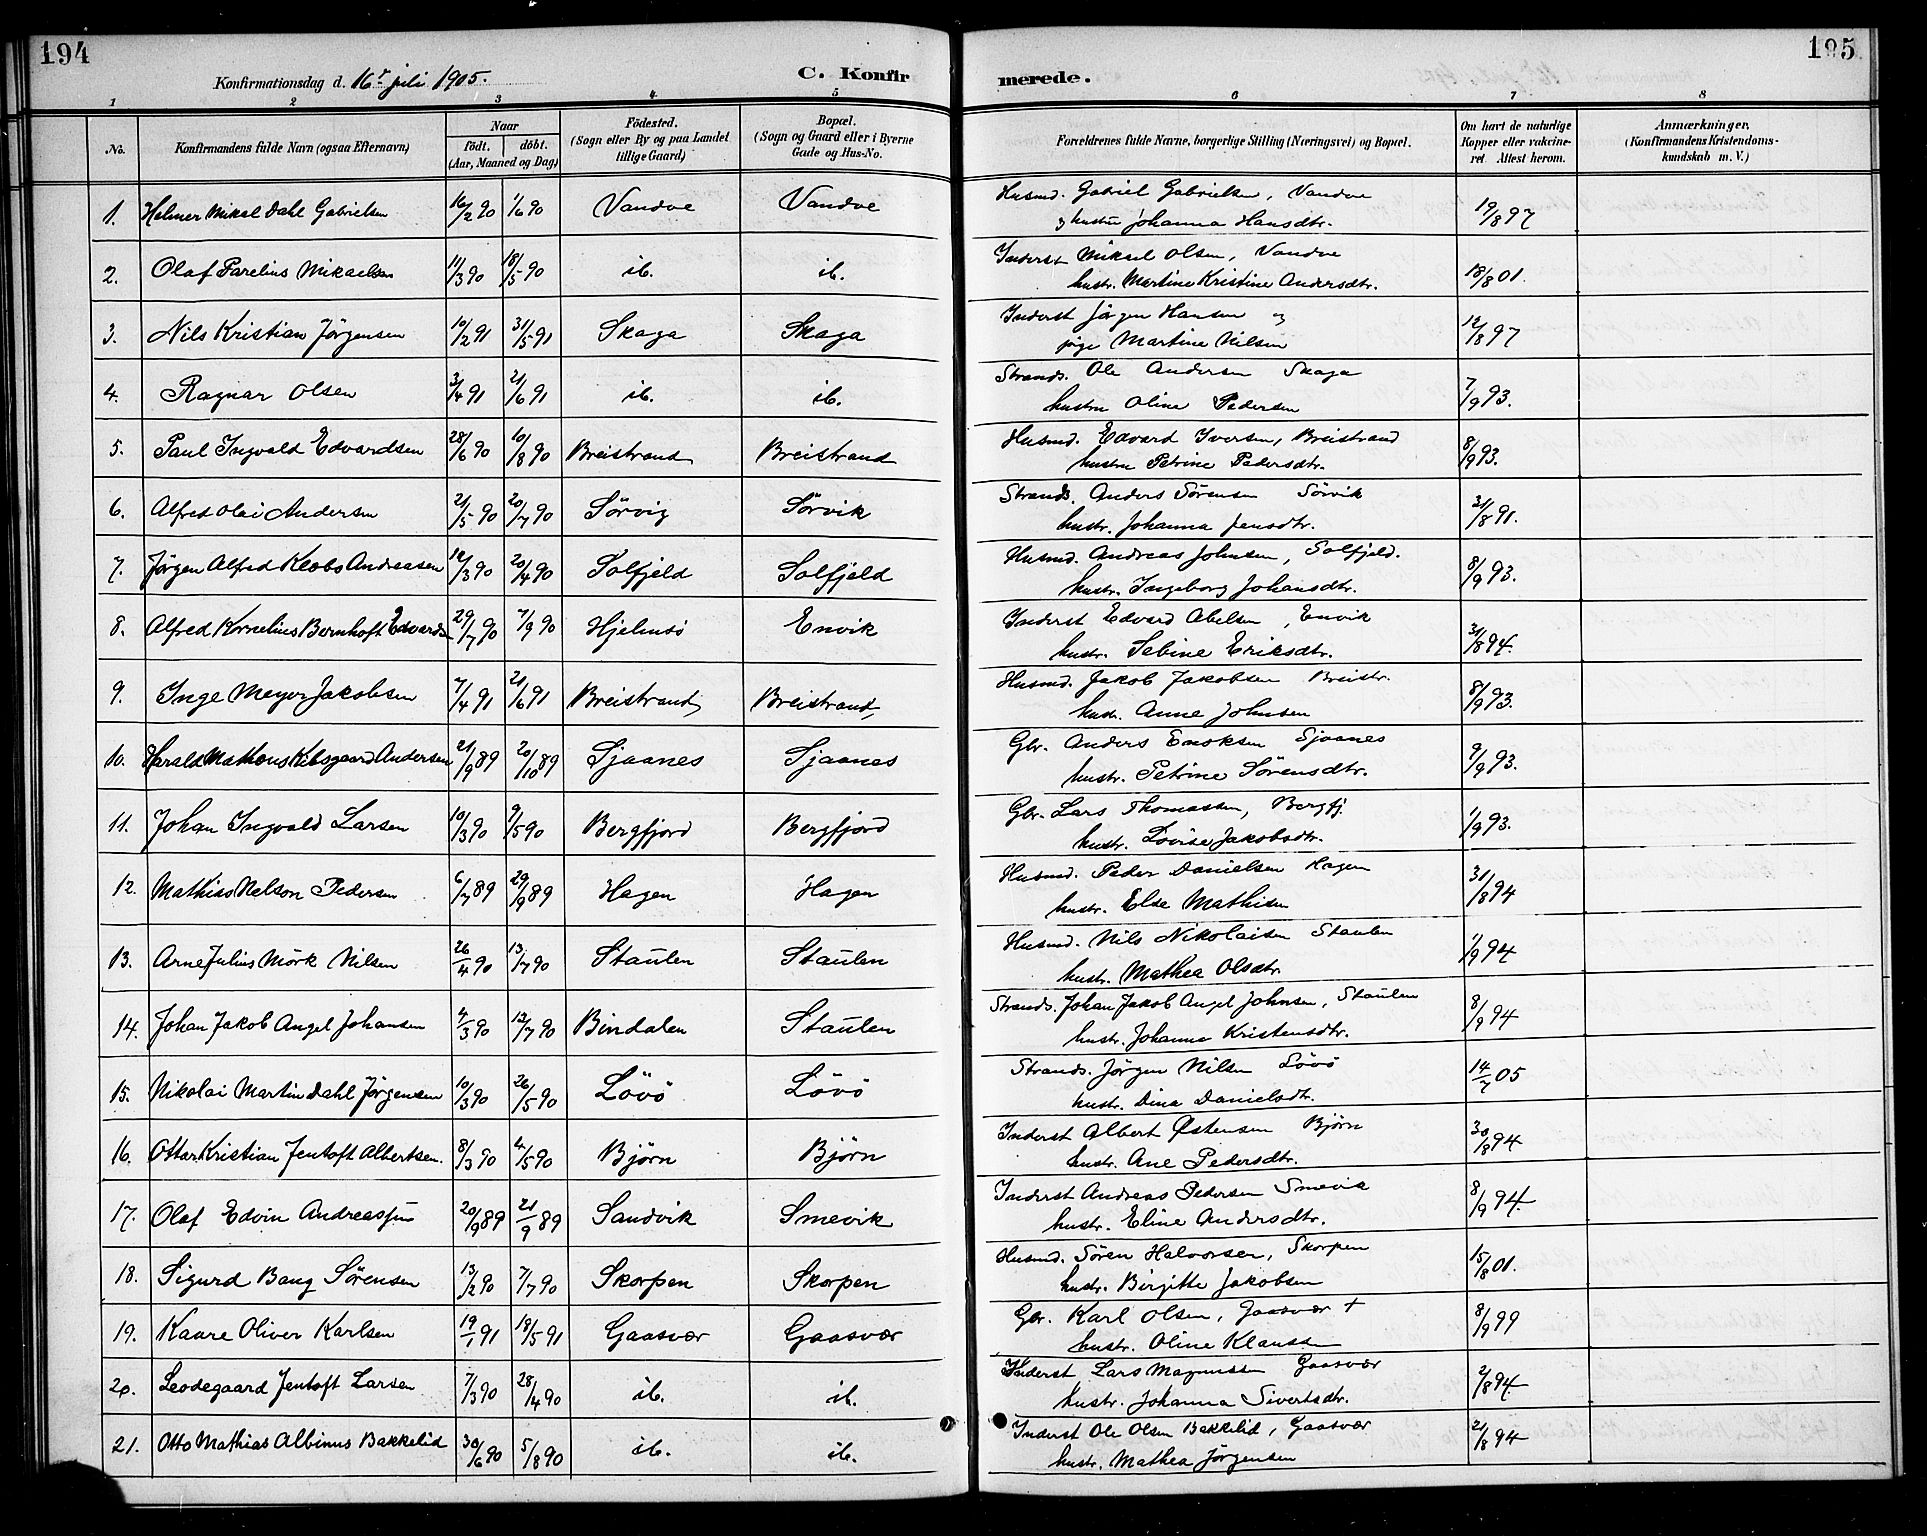 194
195
Konfirmationsdag d. 16' juli 1905.
C. Konfir
merede.
1 2 3 4 5 6 7 8
No.
Konfirmandens fulde Navn (ogsaa Efternavn)
Naar
födt. döbt.
(Aar, Maaned og Dag)
Födested.
(Sogn eller By og paa Landet
tillige Gaard)
Bopæl.
(Sogn og Gaard eller i Byerne
Gade og Hus-No.
Forældrenes fulde Navne, borgerlige Stilling (Næringsvei) og Bopæl.
Om havt de naturlige
Kopper eller vakcine-
ret Attest herom.
Anmærkninger,
(Konfirmandens Kristendoms-
kundskab m. V.)
1. Helmer Mikal Dahl Gabrielsen 16/2 90 1/6 90 Vandve Vandve Husmd. Gabriel Gabrielsen, Vandve 19/8 97
og hustru Johanna Hansdtr.
2. Olaf Parelius Mikaelsen 11/3 90 18/5 90 ib. ib. Inderst Mikael Olsen, Vandve 18/8 01.
hustr. Martine Kristine Andersdtr.
3. Nils Kristian Jørgensen 10/2 91 31/5 91 Skaga Skaga Inderst Jørgen Hansen og 12/8 97
pige Martine Nilsen
4. Ragnar Olsen 3/4 91 21/6 91 ib. ib. Strands. Ole Andersen Skaga 7/9 93.
hustru Oline Pedersen
5. Paul Ingvald Edvardsen 28/6 90 10/8 90 Breistrand Breistrand Husmd. Edvard Iversen, Breistrand 8/9 93.
hustru Petrine Pedersdtr.
6. Alfred Olai Andersen 21/5 90 20/7 90 Sørvig Sørvik Strands. Anders Sörensen Sörvik 31/8 91.
hustr. Johanna Jensdtr.
7. Jørgen Alfred Klæbo Andreasen 12/3 90 20/4 90 Solfjeld Solfjeld Husmd. Andreas Johnsen, Solfjeld. 8/9 93.
hustr. Ingeborg Johansdtr.
8. Alfred Kornelius Bernhoft Edvards 29/7 90 7/9 90 Hjelmsö Envik Inderst Edvard Abelsen, Envik 31/8 94.
hustr. Sebine Eriksdtr.
9. Inge Meyer Jakobsen 7/4 91 21/6 91 Breistrand Breistrand, Husmd. Jakob Jakobsen Breistr. 8/9 93.
hustr. Anne Johnsen
10. Harald Mathæus Kibsgaard Andersen 21/9 89 20/10 89 Sjaanes Sjaanes Gbr. Anders Enoksen Sjaanes 9/9 93.
hustr. Petrine Sörensdtr.
11. Johan Ingvald Larsen 10/3 90 9/5 90 Bergfjord Bergfjord Gbr. Lars Thomassen, Bergfj. 1/9 93.
hustr. Lovise Jakobsdtr.
12. Mathias Nelson Pedersen 6/7 89 29/9 89 Hagen Hagen Husmd. Peder Danielsen Hagen 31/8 94
hustr. Else Mathisen
13. Arne Julius Mörk Nilsen 26/4 90 13/7 90 Staulen Staulen Husmd. Nils Nikolaisen Staulen 1/9 94
hustr. Mathea Olsdtr.
14. Johan Jakob Angel Johansen 4/3 90 13/7 90 Bindalen Staulen Strands. Johan Jakob Angel Johnsen, Staulen 8/9 94
hustr. Johanna Kristensdtr.
15. Nikolai Martin Dahl Jørgensen 10/3 90 26/5 90 Lövö Lövö Strands. Jörgen Nilsen Lövö 14/7 05
hustr. Dina Danielsdtr.
16. Ottar Kristian Jentoft Albertsen. 8/3 90 4/5 90 Björn Björn Inderst Albert Østensen Bjørn 30/8 94
hustr. Ane Pedersdtr.
17. Olaf Edvin Andreassen 20/9 89 21/9 89 Sandvik Smevik Inderst Andreas Pedersen Smevik 8/9 94.
hustr. Eline Andersdtr.
18. Sigurd Bang Sörensen 13/2 90 7/7 90 Skorpen Skorpen Husmd. Sören Halvorsen, Skorpen 15/8 01.
hustr. Birgitte Jakobsen
19. Kaare Oliver Karlsen 19/1 91 18/5 91 Gaasvær Gaasvær Gbr. Karl Olsen, Gaasvær + 8/9 99
hustr. Oline Klausen
20. Leodegaard Jentoft Larsen 7/3 90 28/4 90 ib. ib. Inderst Lars Magnussen Gaasvær 2/8 94
hustr. Johanna Sivertsdtr.
21. Otto Mathias Albinus Bakkelid 30/6 90 5/8 90 ib. ib. Inderst Ole Olsen Bakkelid, Gaasvær 21/8 94
hustr. Mathea Jørgensen